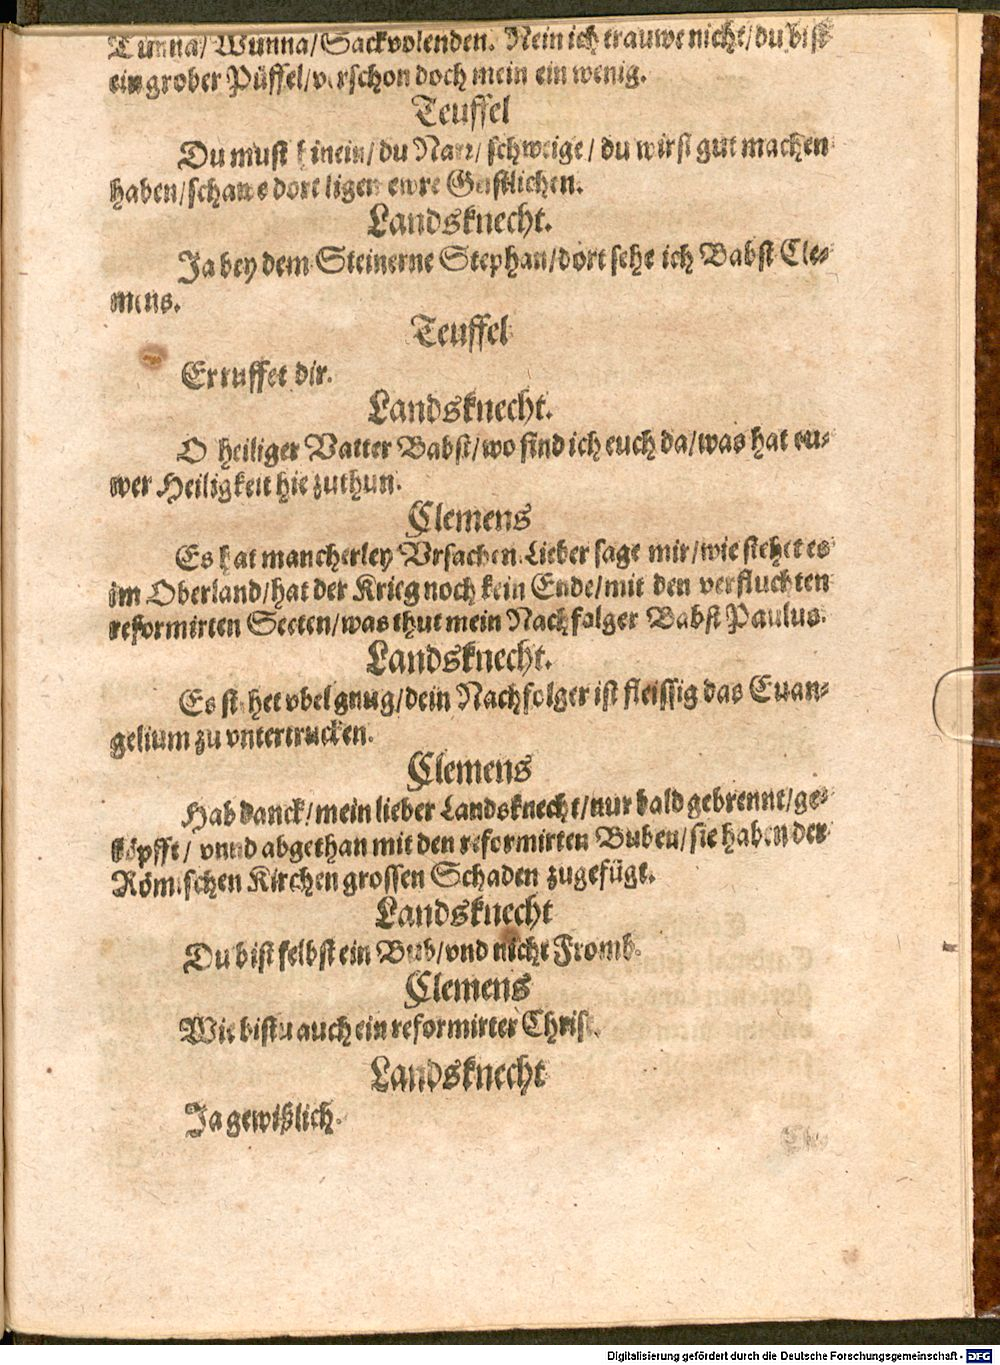 Tunna/ Wunna/ Sackvolenden. Nein ich trauwe nicht/ du bist
ein grober Püffel/ verschon doch mein ein wenig.
Teuffel
Du must hinein/ du Narr/ schweige/ du wirst gut machen
haben/ schaw dort ligen ewre Geistlichen.
Landsknecht.
Ja bey dem Steinerne Stephan/ dort sehe ich Babst Cle-
mens.
Teuffel
Er ruffet dir.
Landsknecht.
O heiliger Vatter Babst/ wo find ich euch da/ was hat eu-
wer Heiligkeit hie zuthun.
Clemens
Es hat mancherley Vrsachen. Lieber sage mir/ wie stehet es
im Oberland/ hat der Krieg noch kein Ende/ mit den verfluchten
reformirten Secten/ was thut mein Nachfolger Babst Paulus.
Landsknecht.
Es stehet vbel gnug/ dein Nachfolger ist fleissig das Euan-
gelium zu vntertrucken.
Clemens
Hab danck/ mein lieber Landsknecht/ nur bald gebrennt/ ge-
köpfft/ vnnd abgethan mit den reformirten Buben/ sie haben der
Römischen Kirchen grossen Schaden zugefügt.
Landsknecht
Du bist selbst ein Bub/ vnd nicht Fromb.
Clemens
Wie bistu auch ein reformirter Christ.
Landsknecht
Ja gewißlich.
Cle-
Digitalisierung gefördert durch die Deutsche Forschungsgemeinschaft - DFG